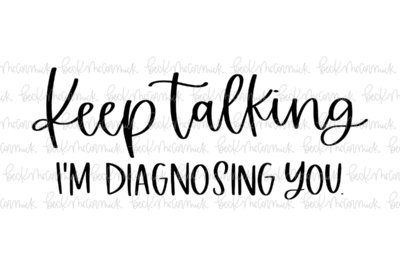 Keep talking
I'M DIAGNOSING YOU.